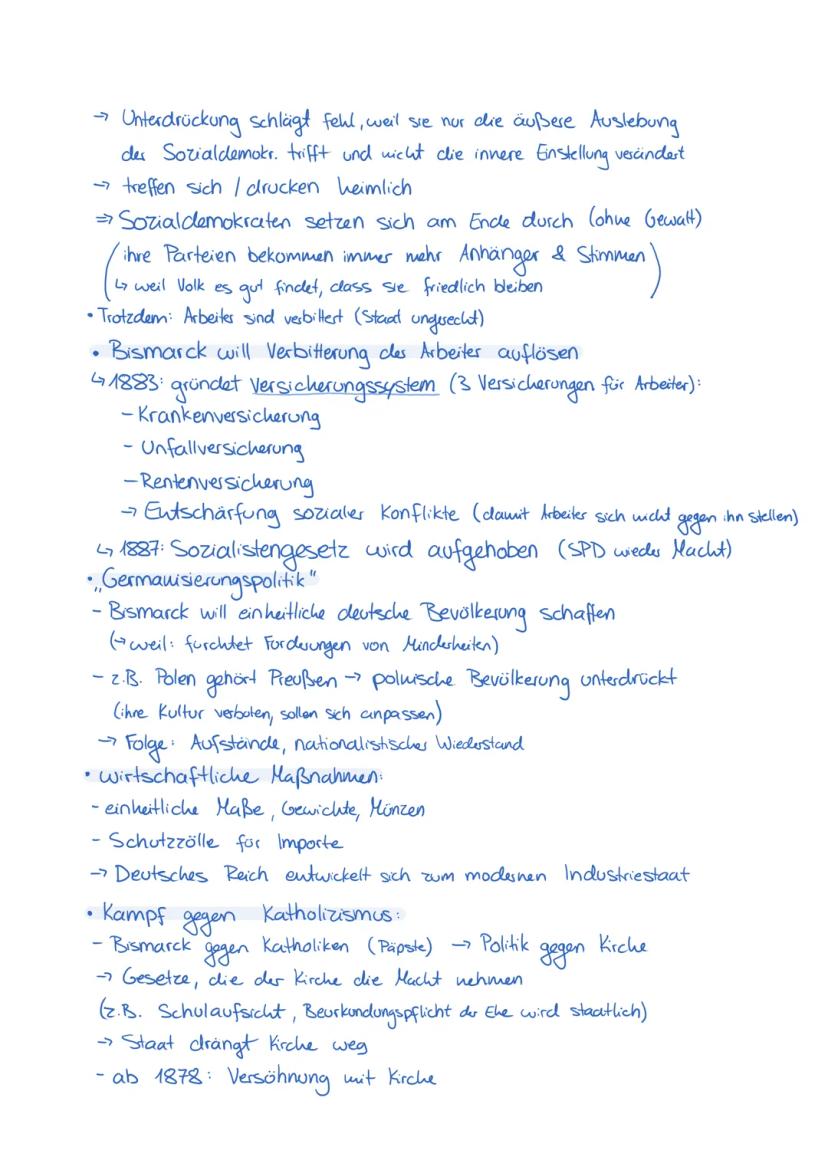 → Unterdrückung schlägt fehl, weil sie nur die äußere Auslebung
der Sozialdemokr. trifft und nicht die innere Einstellung verändert
→ treffen sich / drucken heimlich
⇒ Sozialdemokraten setzen sich am Ende durch (ohne Gewalt)
(ihre Parteien bekommen immer mehr Anhänger & Stimmen
↳ weil Volk es gut findet, dass sie friedlich bleiben)
• Trotzdem: Arbeiter sind verbittert (Staat ungerecht)
• Bismarck will Verbitterung der Arbeiter auflösen
↳ 1883: gründet Versicherungssystem (3 Versicherungen für Arbeiter):
- Krankenversicherung
- Unfallversicherung
- Rentenversicherung
→ Entschärfung sozialer Konflikte (damit Arbeiter sich nicht gegen ihn stellen)
↳ 1887: Sozialistengesetz wird aufgehoben (SPD wieder Macht)
• „Germanisierungspolitik"
- Bismarck will einheitliche deutsche Bevölkerung schaffen
(→ weil: fürchtet Forderungen von Minderheiten)
- z.B. Polen gehört Preußen → polnische Bevölkerung unterdrückt
(ihre Kultur verboten, sollen sich anpassen)
→ Folge: Aufstände, nationalistischer Wiederstand
• wirtschaftliche Maßnahmen:
- einheitliche Maße, Gewichte, Münzen
- Schutzzölle für Importe
→ Deutsches Reich entwickelt sich zum modernen Industriestaat
• Kampf gegen Katholizismus:
- Bismarck gegen Katholiken (Päpste) → Politik gegen Kirche
→ Gesetze, die der Kirche die Macht nehmen
(z.B. Schulaufsicht, Beurkundungspflicht der Ehe wird staatlich)
→ Staat drängt Kirche weg
- ab 1878: Versöhnung mit Kirche